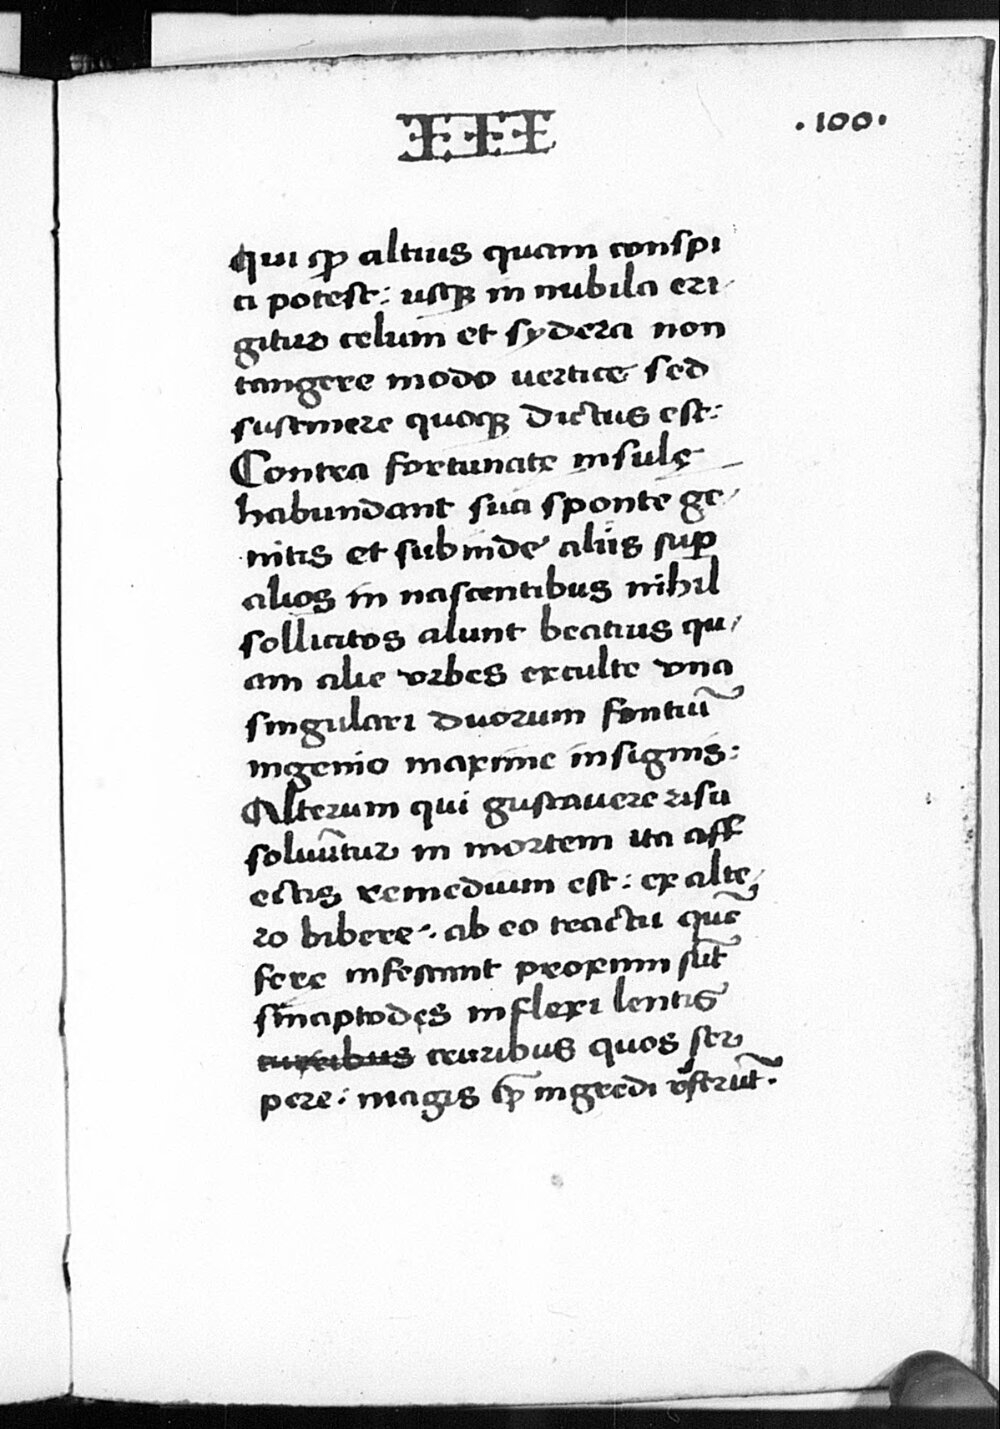 IIII
.100.
Qui qꝫ altius quam conspi
ci potest: usqꝫ in nubila eri-
gitur celum et sydera non
tangere modo uertice sed
sustinere quoqꝫ dictus est:
Contra fortunate insulę
habundant sua sponte ge-
nitis et subinde aliis suꝑ
alios in nascentibus nihil
sollicitos alunt beatius qu-
am alie vrbes exculte vna
singulari duorum fontiū
ingenio maxime insignis:
Alterum qui gustauere risu
soluūtur in mortem ita aff
ectis remedium est: ex alte-
ro bibere. ab eo tractu quē
fere infestant proximi sūt
sinaptodes inflexi lentis
cruribus quos ser
pere: magis qꝫ ingredi vferūt.